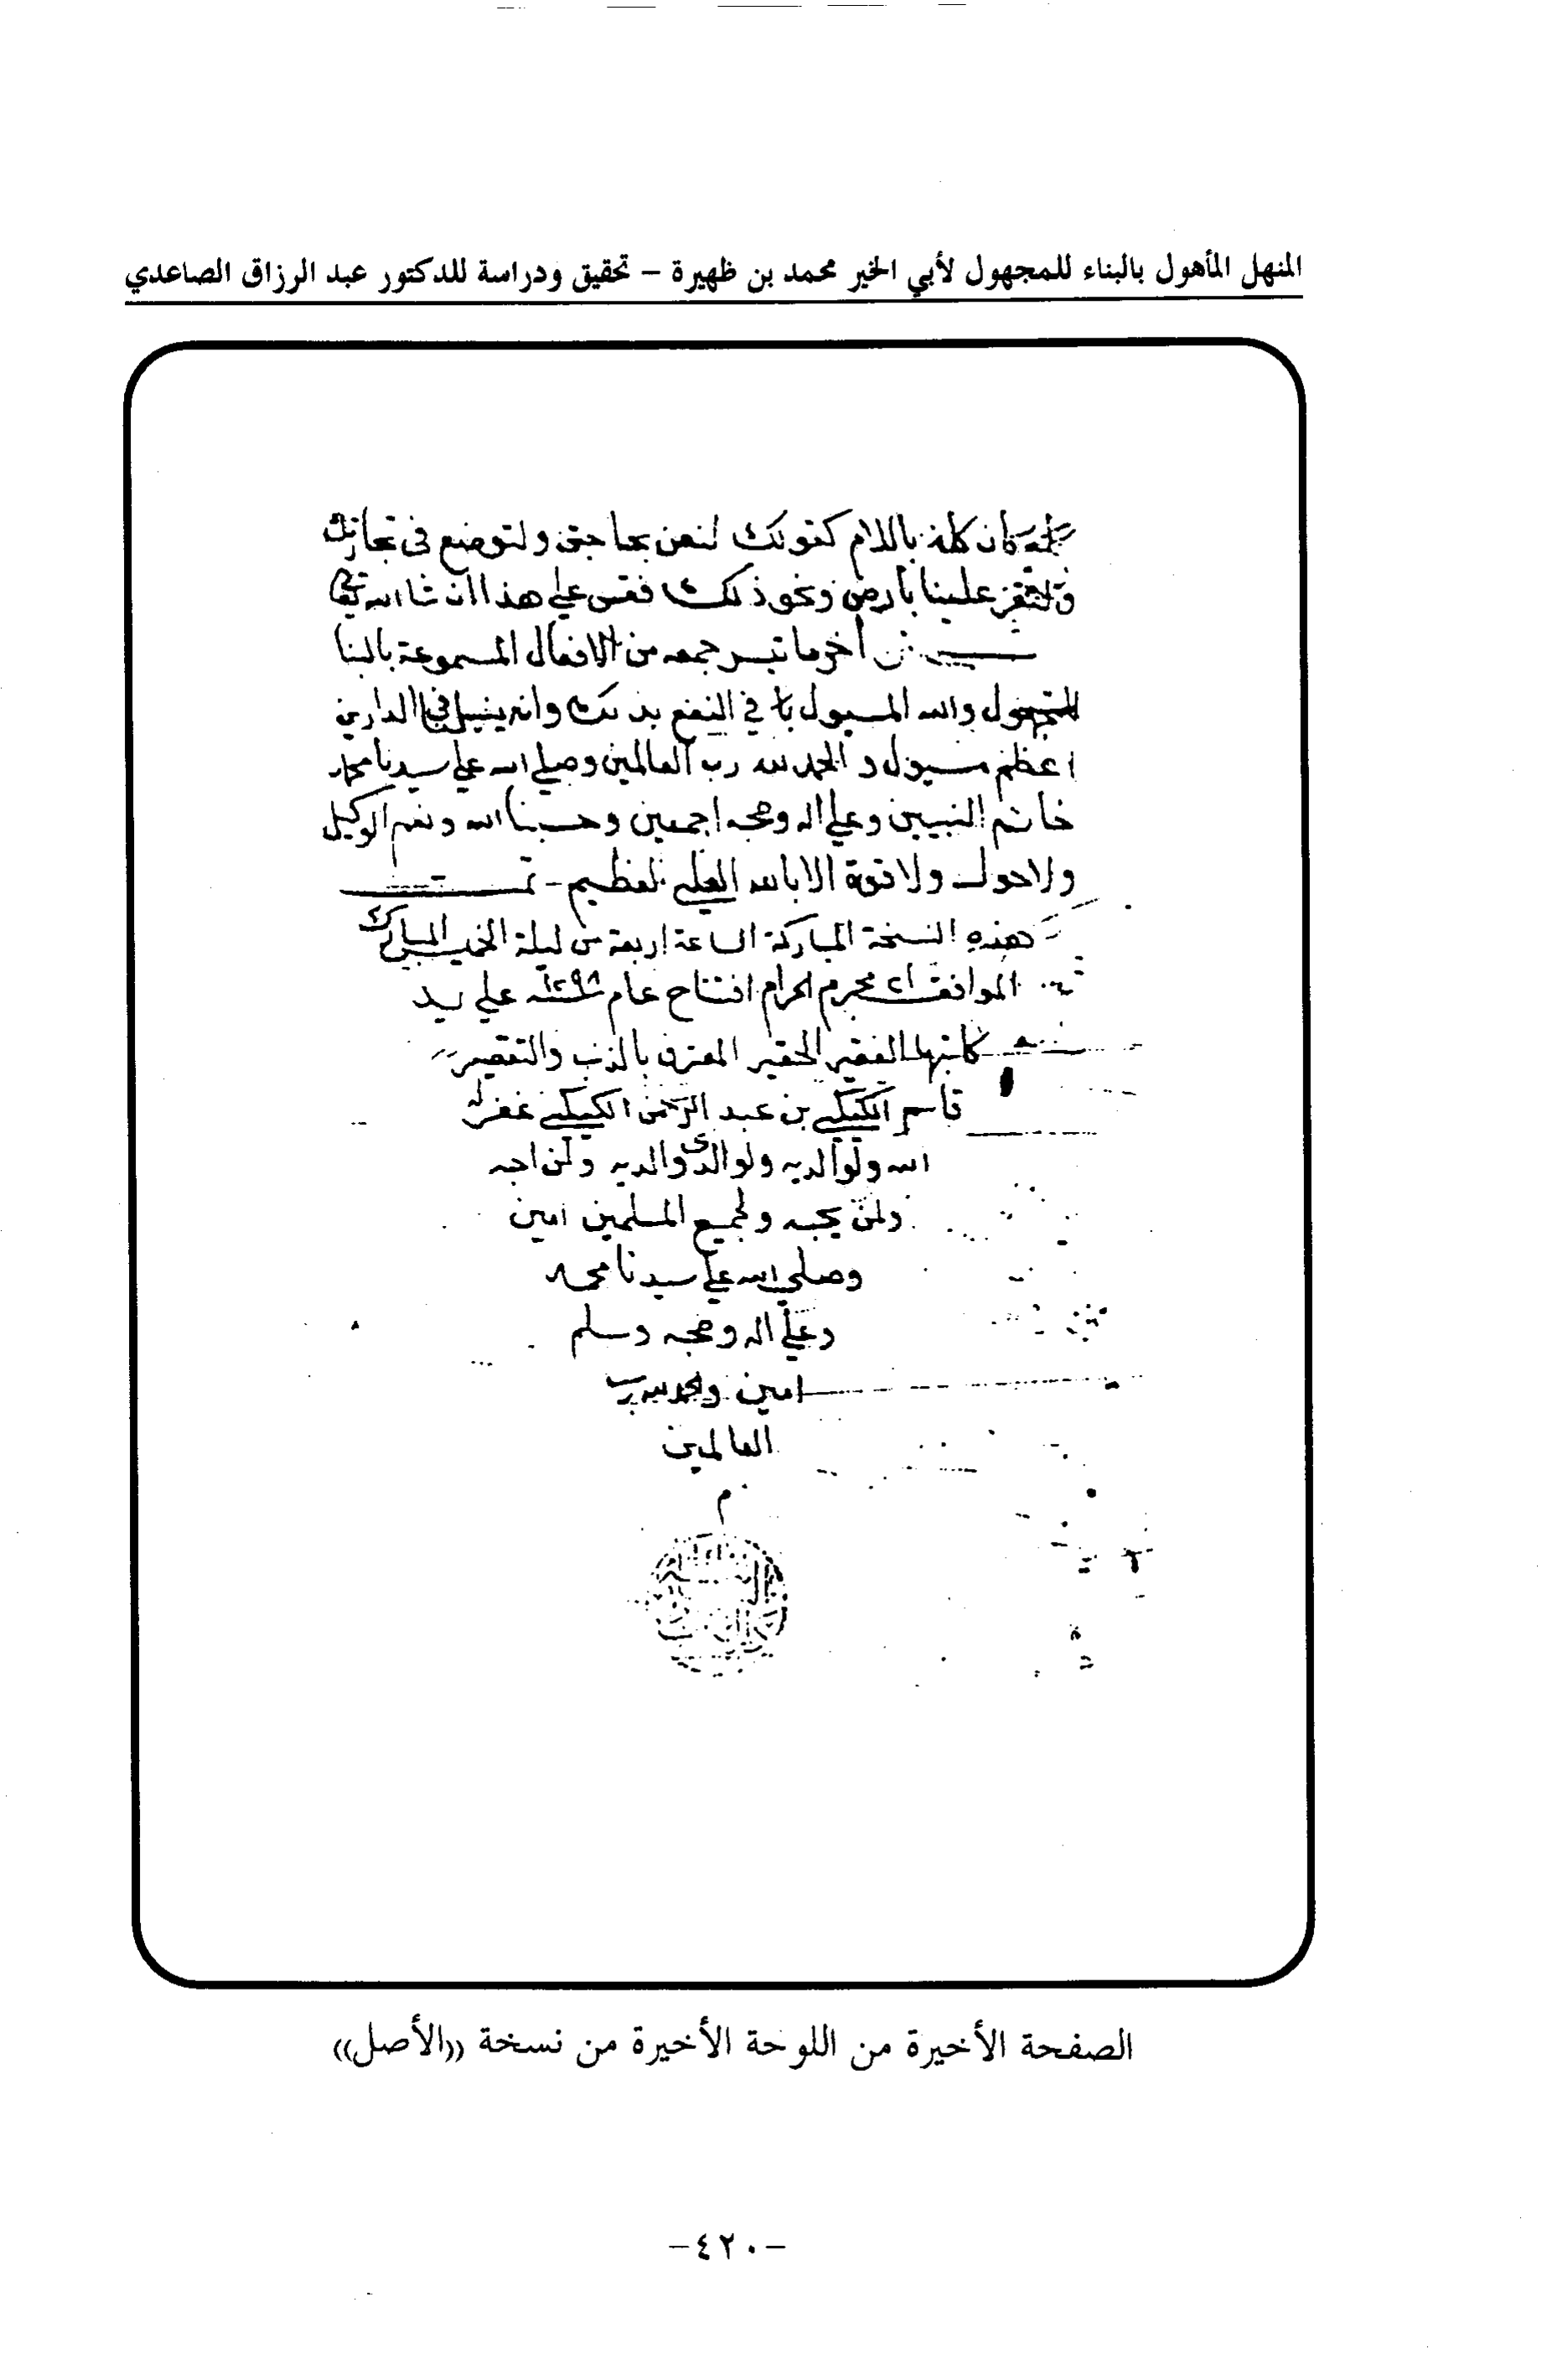 المنهل المأهول بالبناء للمجهول لأبي الخير محمد بن ظهيرة – تحقيق ودراسة للدكتور عبد الرزاق الصاعدي
كان كله باللام كقولك لتعن بحاجتى ولتوضع فى تجارتك
علينا بارض ونحو ذلك فقس علي هذا ان شا الله تعالى
آخر ما تيسر جمعه من الافعال المسموعة بالبنا
للمجهول والله المسيول في النفع بذلك وانه ينيلني في الدارين
اعظم مسيول والحمد لله رب العالمين وصلي الله علي سيدنا محمد
خاتم النبيين وعلي اله وصحبه اجمعين وحسبنا الله ونعم الوكيل
ولا حول ولا قوة الا بالله العلي العظيم - تمت
هذه النسخة المباركة الساعة اربعة من ليلة الخميس المبارك
الموافق ٢١ محرم الحرام افتتاح عام ١٢٩٨ سنه علي يد
كاتبها الفقير الحقير المعترف بالذنب والتقصير
قاسم بن عبد الرحمن غفر له
الله ولوالديه ولوالدى والديه ولمن احبه
ولمن يحبه ولجميع المسلمين امين
وصلي الله علي سيدنا محمد
وعلي اله وصحبه وسلم
امين والحمد لله رب
العالمين
م
الصفحة الأخيرة من اللوحة الأخيرة من نسخة ((الأصل))
-٤٢٠-